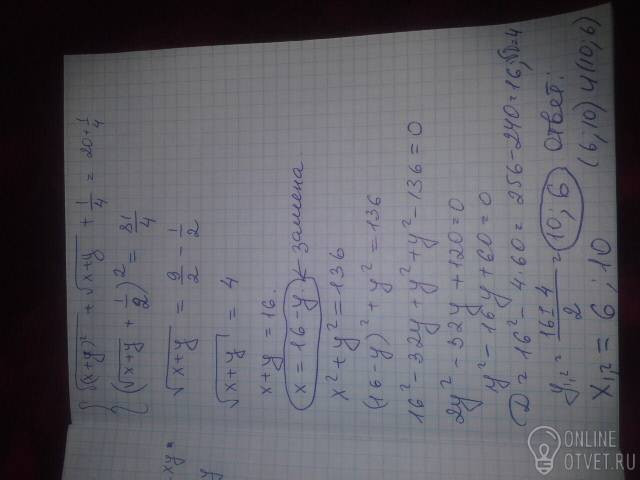 { √(x+y)² + √x+y + 1/4 = 20+1/4
{ (√x+y + 1/2)² = 81/4
√x+y = 9/2 - 1/2
√x+y = 4
x+y = 16.
x = 16-y ← замена.
x²+y² = 136
(16-y)² + y² = 136
16² - 32y + y² + y² - 136 = 0
2y² - 32y + 120 = 0
y² - 16y + 60 = 0
D = 16² - 4·60 = 256 - 240 = 16; √D = 4
y₁,₂ = 16±4/2 = 10; 6 Ответ:
x₁,₂ = 6; 10 (6; 10) и (10; 6)
xy =
y
ONLINE
OTVET.RU